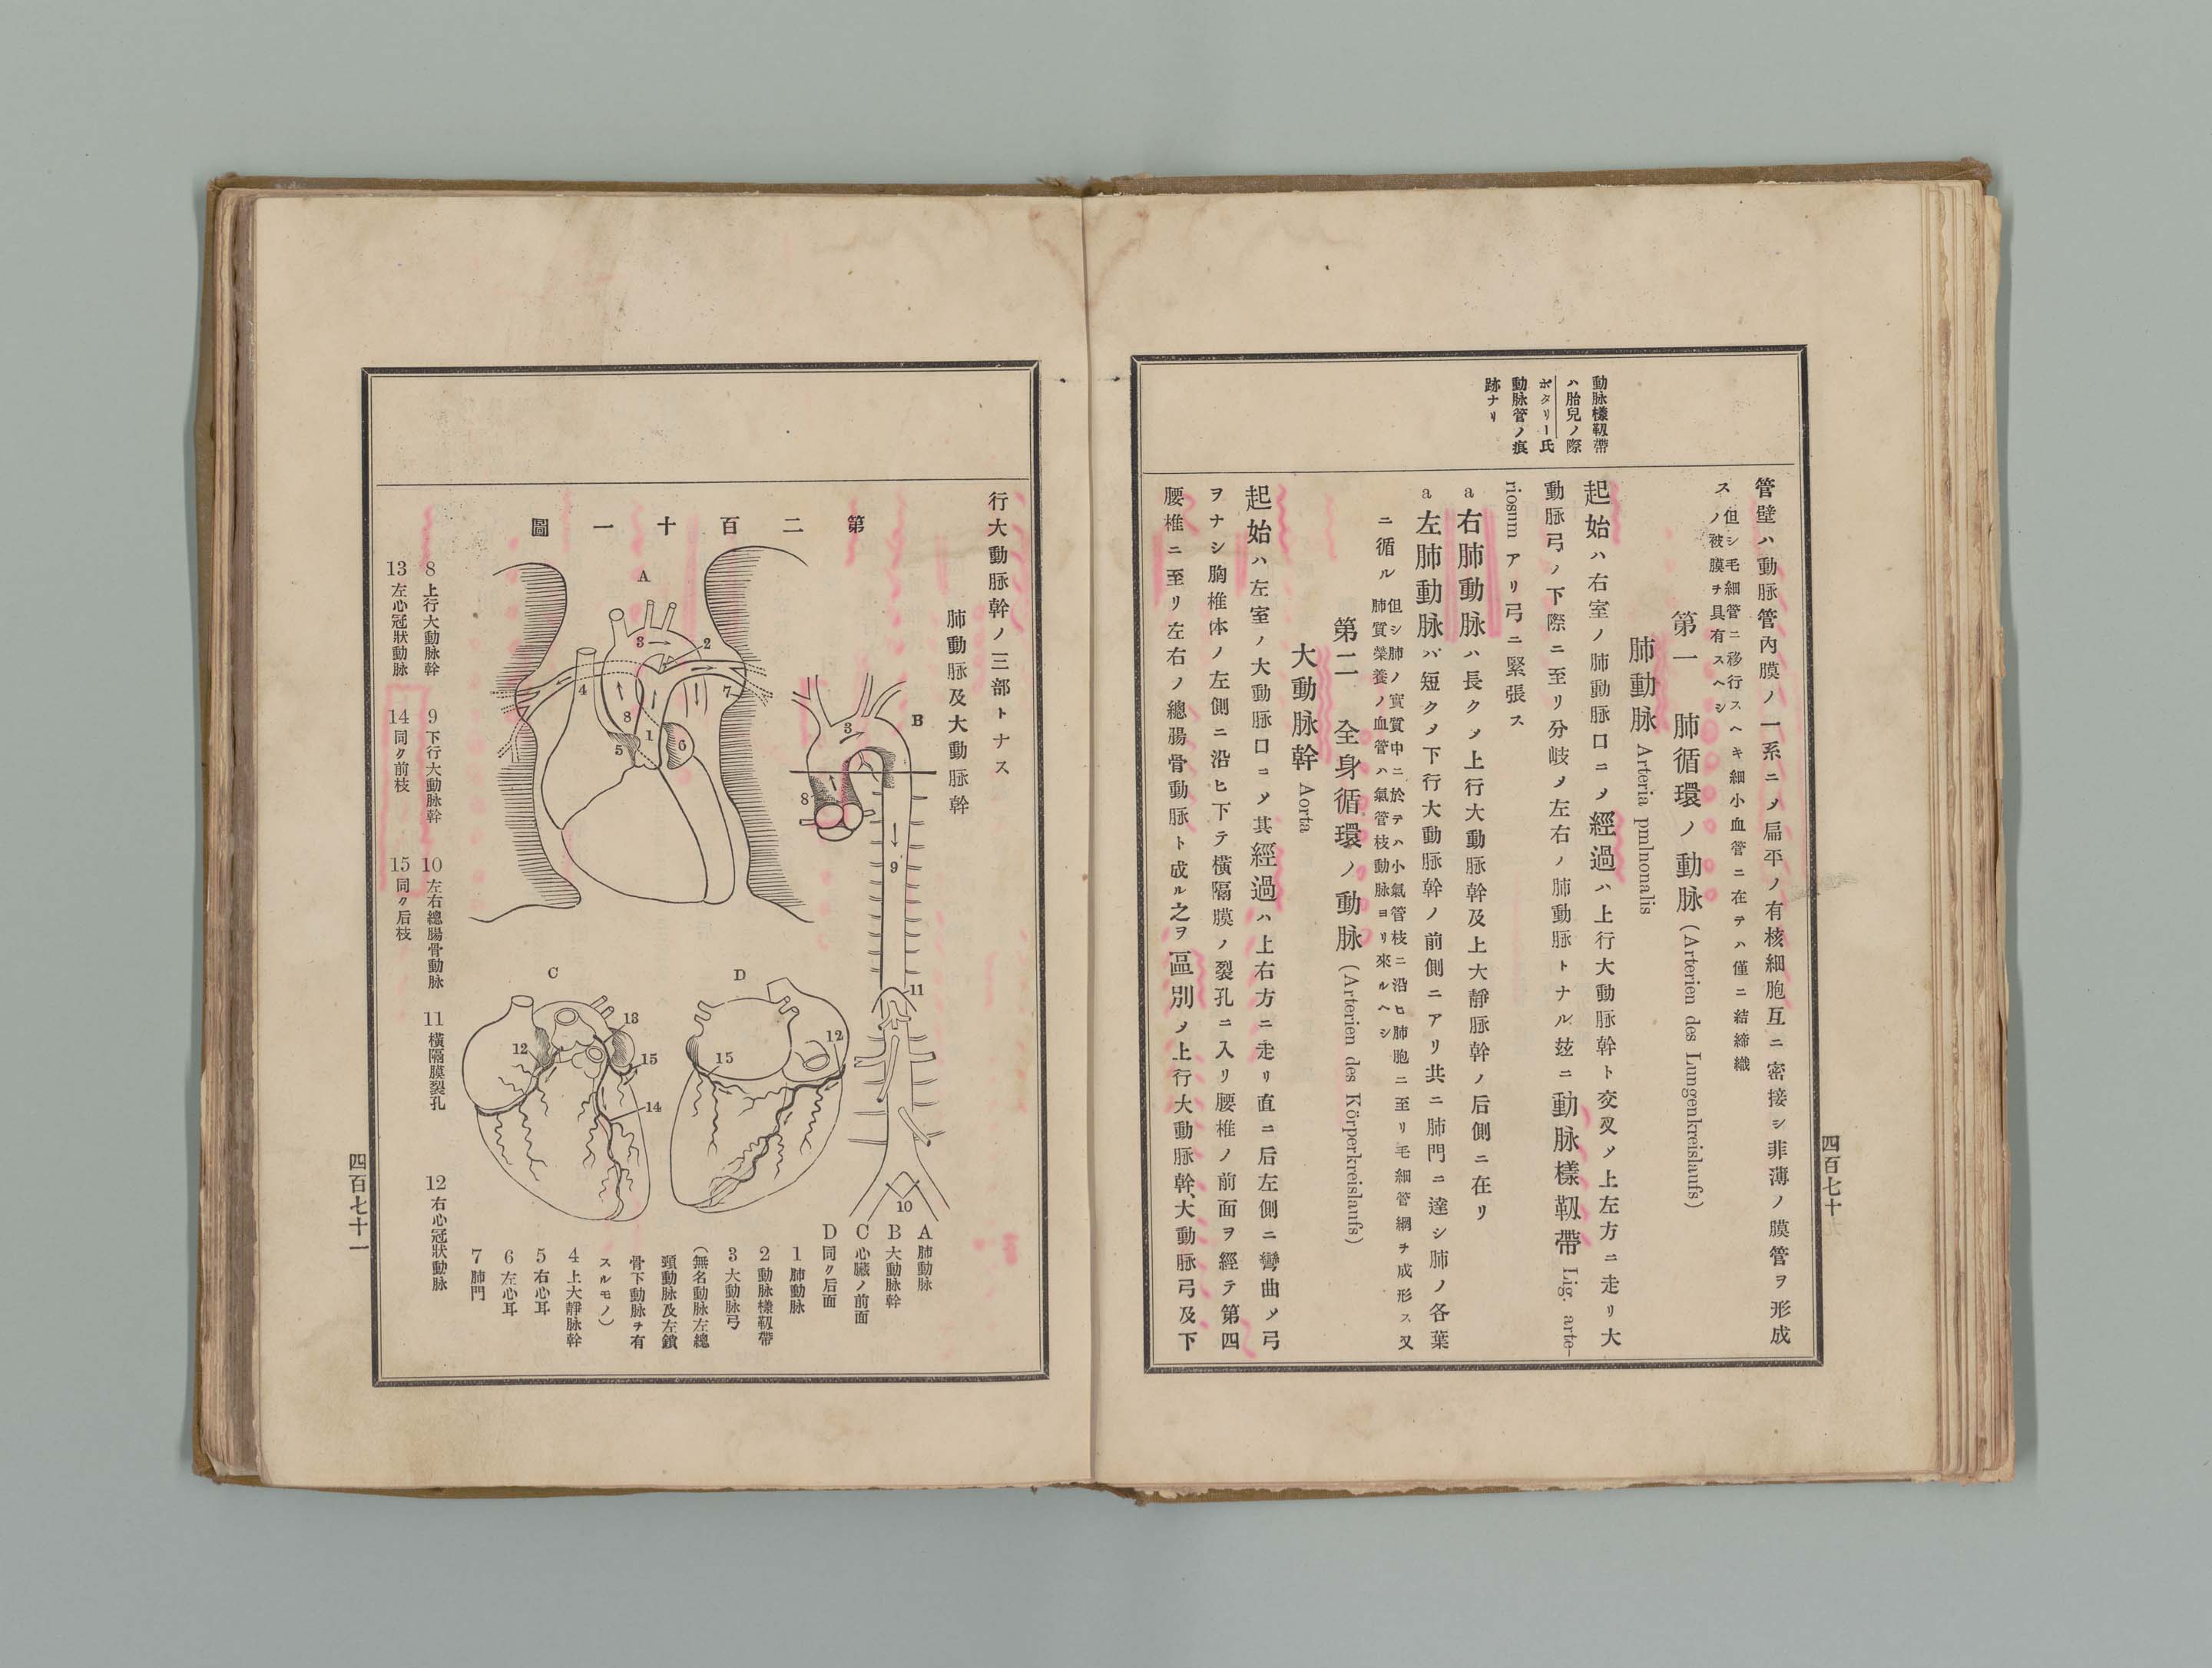 四百七十
動脉樣靱帶
ハ胎兒ノ際
ボタリー氏
動脉管ノ痕
跡ナリ
管壁ハ動脈管內膜ノ一系ニノ扁平ノ有核細胞互ニ密接シ菲薄ノ膜管ヲ形成
ス但シ毛細管ニ移行スヘキ細小血管ニ在テハ僅ニ結締織
ノ被膜ヲ具有スヘシ
第一 肺循環ノ動脉 (Arterien des Lungenkreislaufs)
肺動脉 Arteria pmlnonalis
起始ハ右室ノ肺動脈口ニノ經過ハ上行大動脈幹ト交叉ノ上左方ニ走リ大
動脈弓ノ下際ニ至リ分岐ノ左右ノ肺動脈トナル玆ニ動脉樣靱帶 Lig. arte-
riosnm アリ弓ニ緊張ス
a 右肺動脉ハ長クノ上行大動脈幹及上大靜脈幹ノ后側ニ在リ
a 左肺動脉ハ短クノ下行大動脈幹ノ前側ニアリ共ニ肺門ニ達シ肺ノ各葉
ニ循ル 但シ肺ノ實質中ニ於テハ小氣管枝ニ沿ヒ肺胞ニ至リ毛細管網ヲ成形ス又
肺質榮養ノ血管ハ氣管枝動脉ヨリ來ルヘシ
第二 全身循環ノ動脉 (Arterien des Körperkreislaufs)
大動脉幹 Aorta
起始ハ左室ノ大動脈口ニノ其經過ハ上右方ニ走リ直ニ后左側ニ彎曲ノ弓
ヲナシ胸椎体ノ左側ニ沿ヒ下テ橫隔膜ノ裂孔ニ入リ腰椎ノ前面ヲ經テ第四
腰椎ニ至リ左右ノ總腸骨動脈ト成ル之ヲ區別ノ上行大動脈幹、大動脈弓及下
行大動脈幹ノ三部トナス
肺動脉及大動脉幹
第二百十一圖
A
3
2
4
7
8
1
5
6
B
3
8
9
11
10
C
12
13
15
14
D
15
12
A 肺動脉
B 大動脉幹
C 心臟ノ前面
D 同ク后面
1 肺動脉
2 動脉樣靱帶
3 大動脉弓
(無名動脉左總
頸動脉及左鎖
骨下動脉ヲ有
スルモノ)
4 上大靜脉幹
5 右心耳
6 左心耳
7 肺門
8 上行大動脉幹 9 下行大動脉幹 10 左右總腸骨動脉 11 橫隔膜裂孔 12 右心冠狀動脉
13 左心冠狀動脉 14 同ク前枝 15 同ク后枝
四百七十一